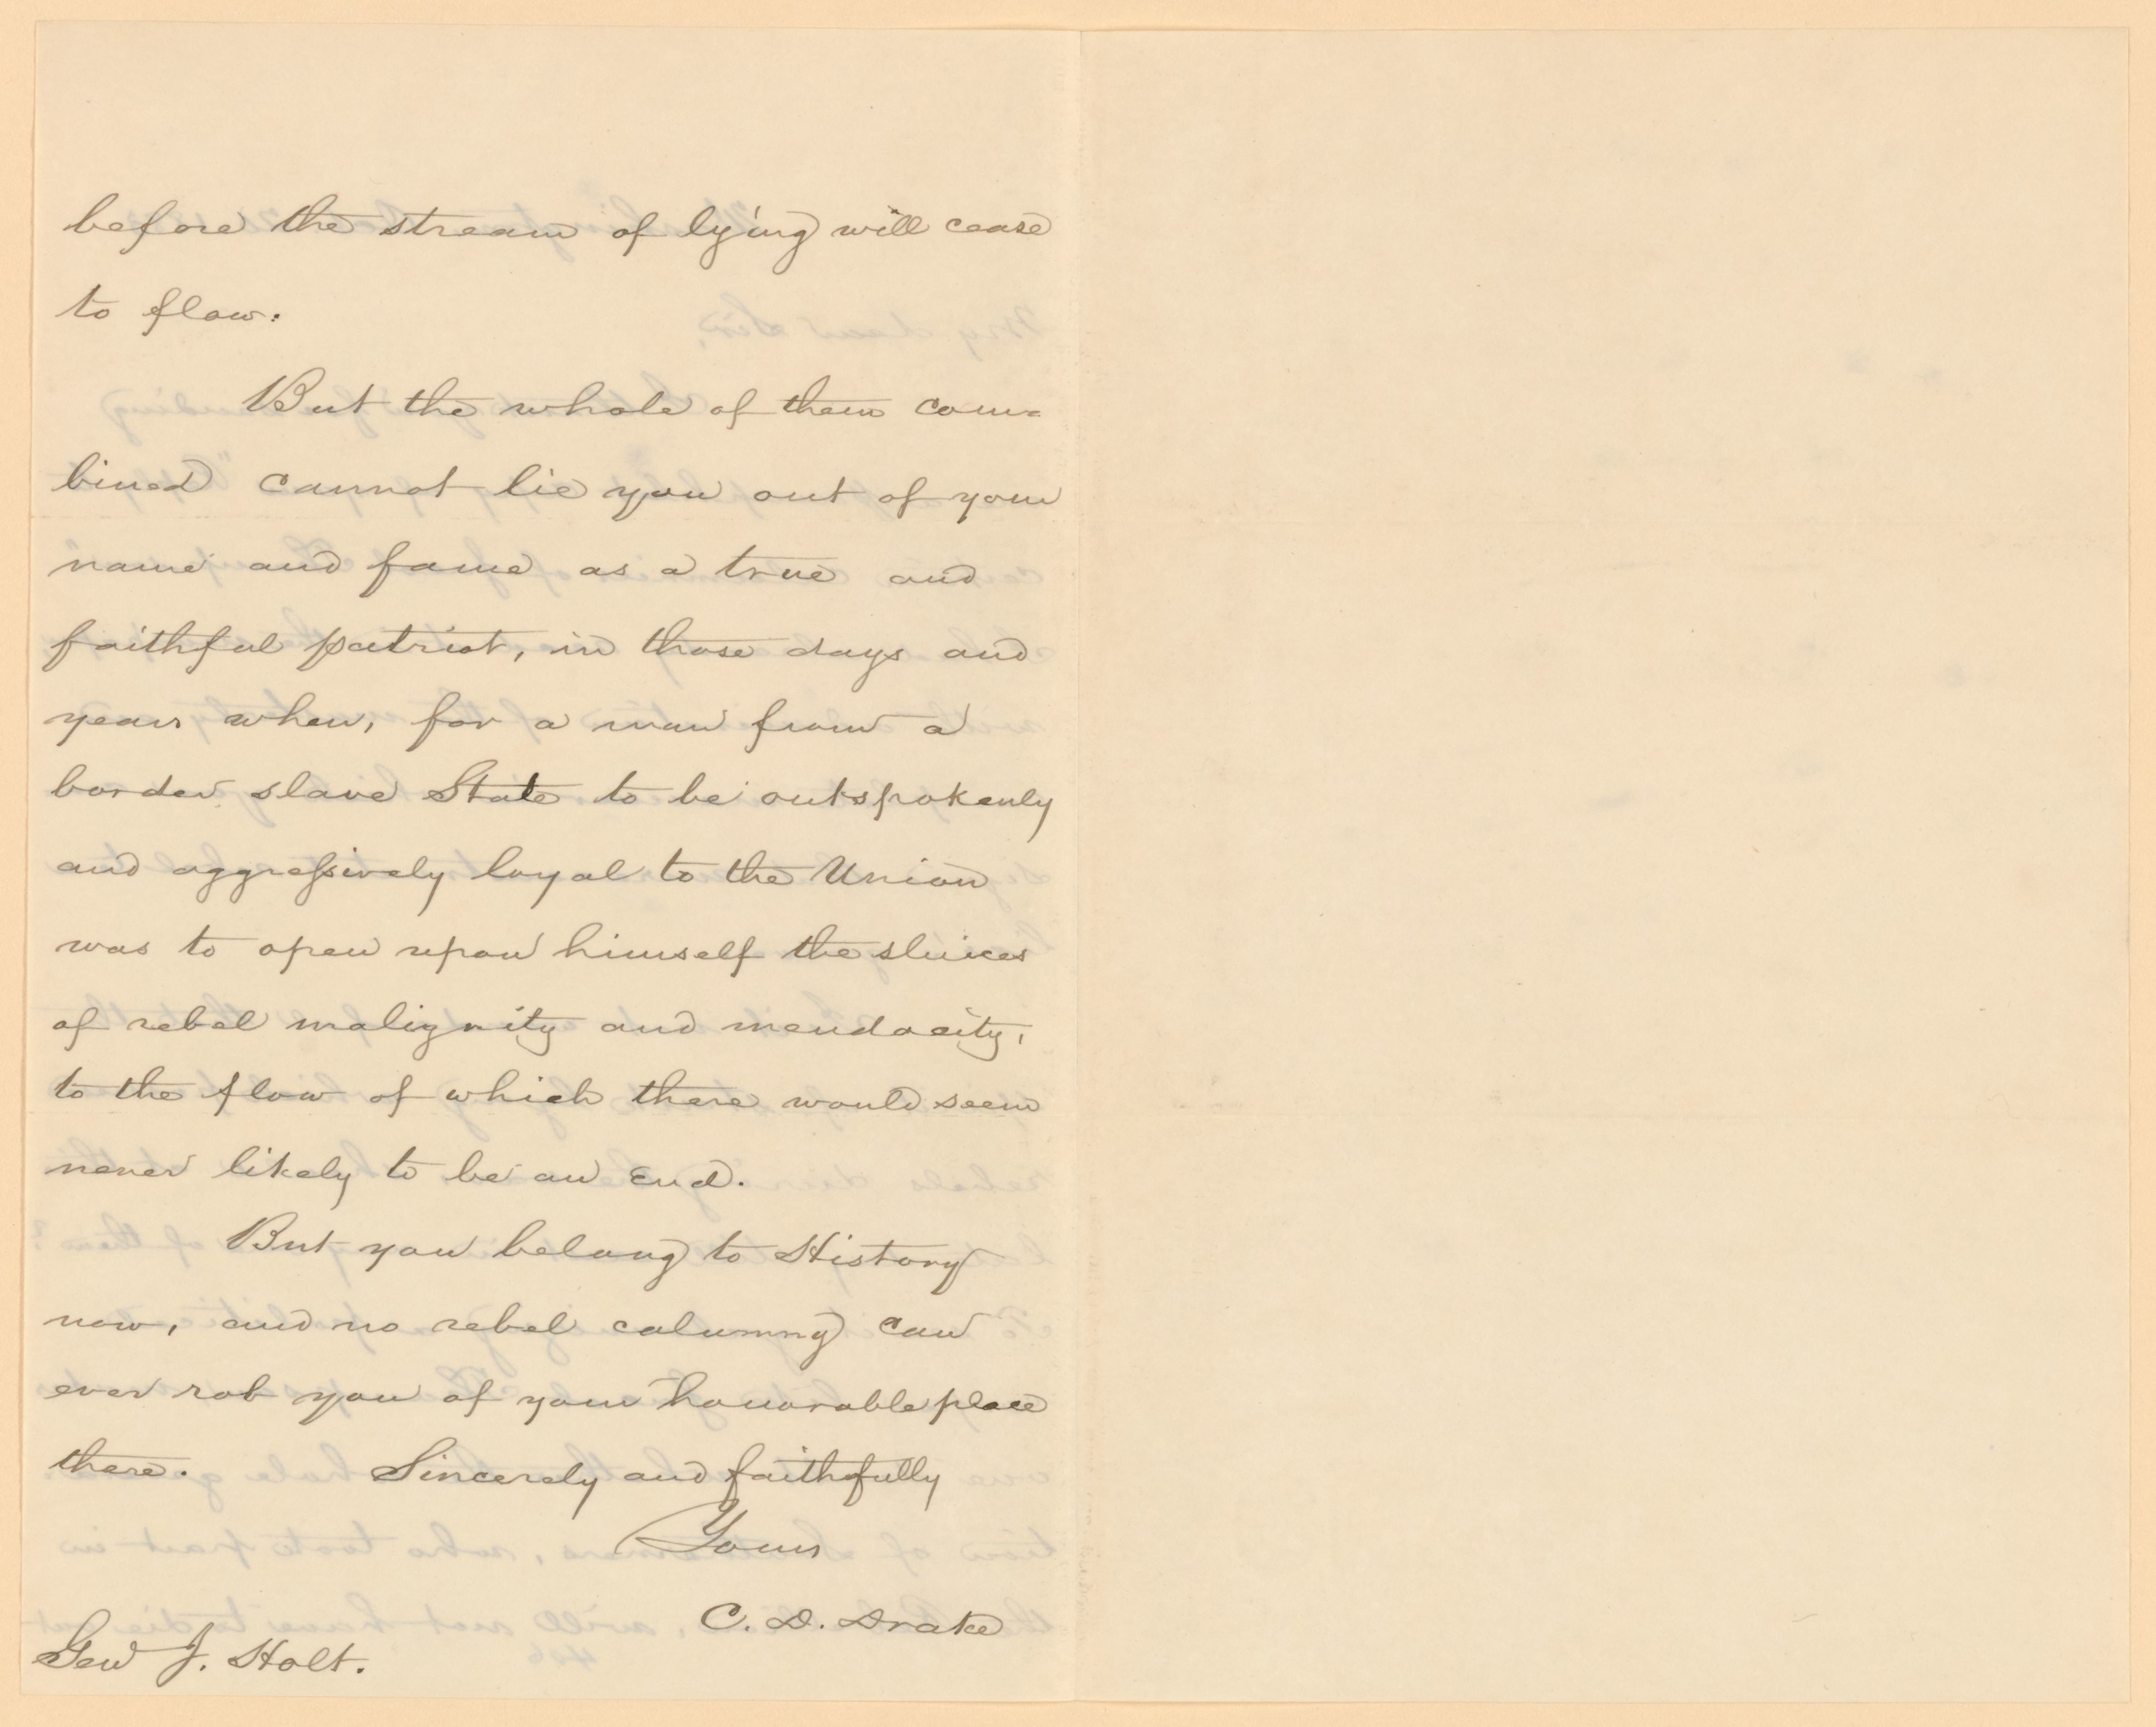 before the stream of lying will cease
to flow.
But the whole of them com-
bined cannot lie you out of your
name and fame as a true and
faithful patriot, in those days and
years when, for a man from a
border slave State to be outspokenly
and aggressively loyal to the Union
was to open upon himself the sluices
of rebel malignity and mendacity,
to the flow of which there would seem
never likely to be an end.
But you belong to History
now, and no rebel calumny can
ever rob you of your honorable place
there. Sincerely and faithfully
Yours
C. D. Drake
Gen J. Holt.